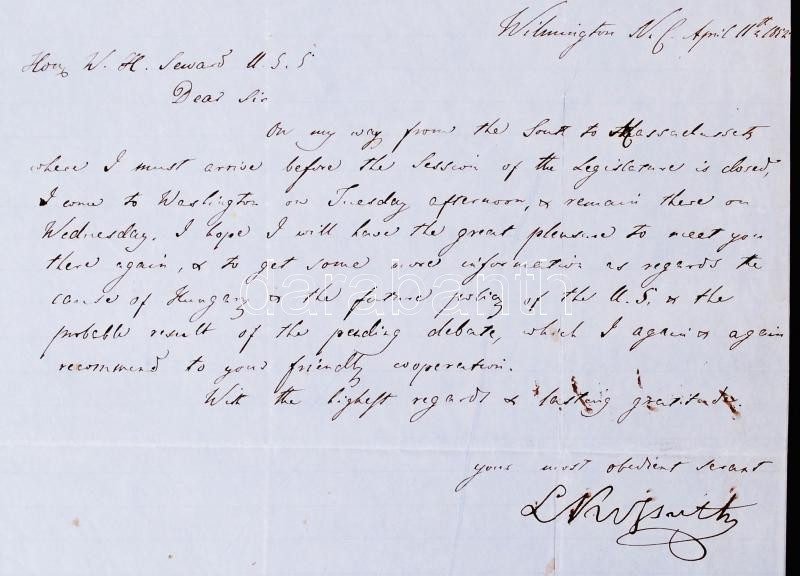 Wilmington N.C. April 11th 1852
Hon. W. H. Seward U.S.S
Dear Sir
On my way from the South to Massachussets
where I must arrive before the Session of the Legislature is closed,
I come to Washington on Tuesday afternoon, & remain there on
Wednesday. I hope I will have the great pleasure to meet you
there again, & to get some more information as regards the
cause of Hungary & the future policy of the U.S. & the
probable result of the pending debate, which I again & again
recommend to your friendly cooperation.
With the highest regards & lasting gratitude.
your most obedient servant
L Kossuth
darabanth